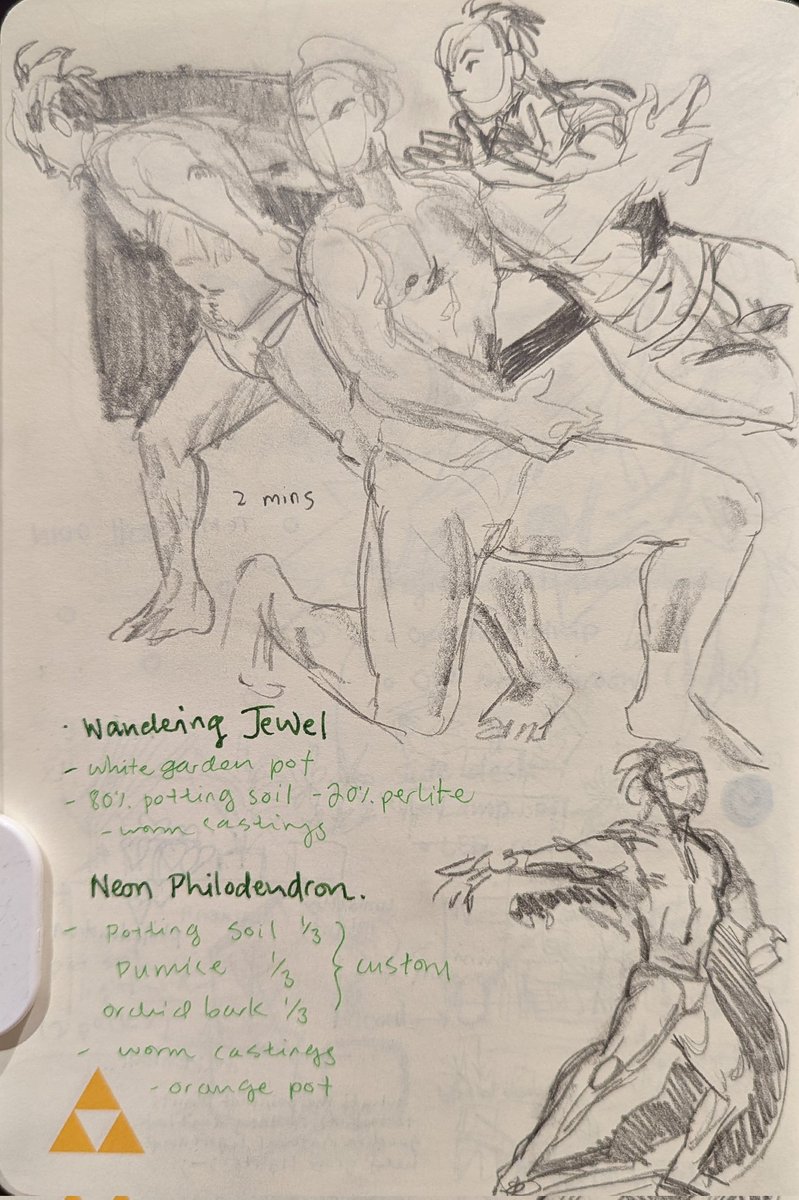 2 mins
· Wandering Jewel
- white garden pot
- 80% potting soil - 20% perlite
- worm castings
Neon Philodendron.
- Potting Soil 1/3
Pumice 1/3 } custom
orchid bark 1/3
- worm castings
- orange pot